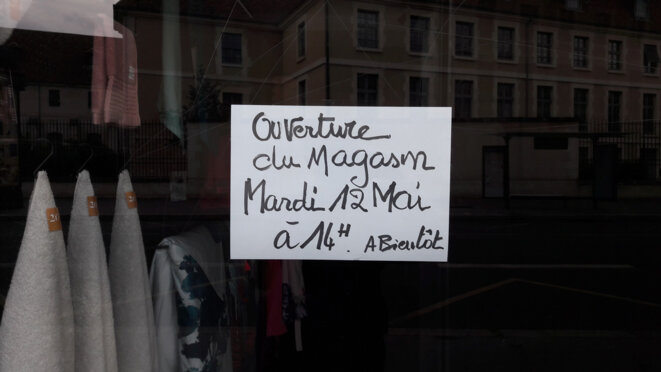 Ouverture
du Magasin
Mardi 12 Mai
à 14H. A Bientôt